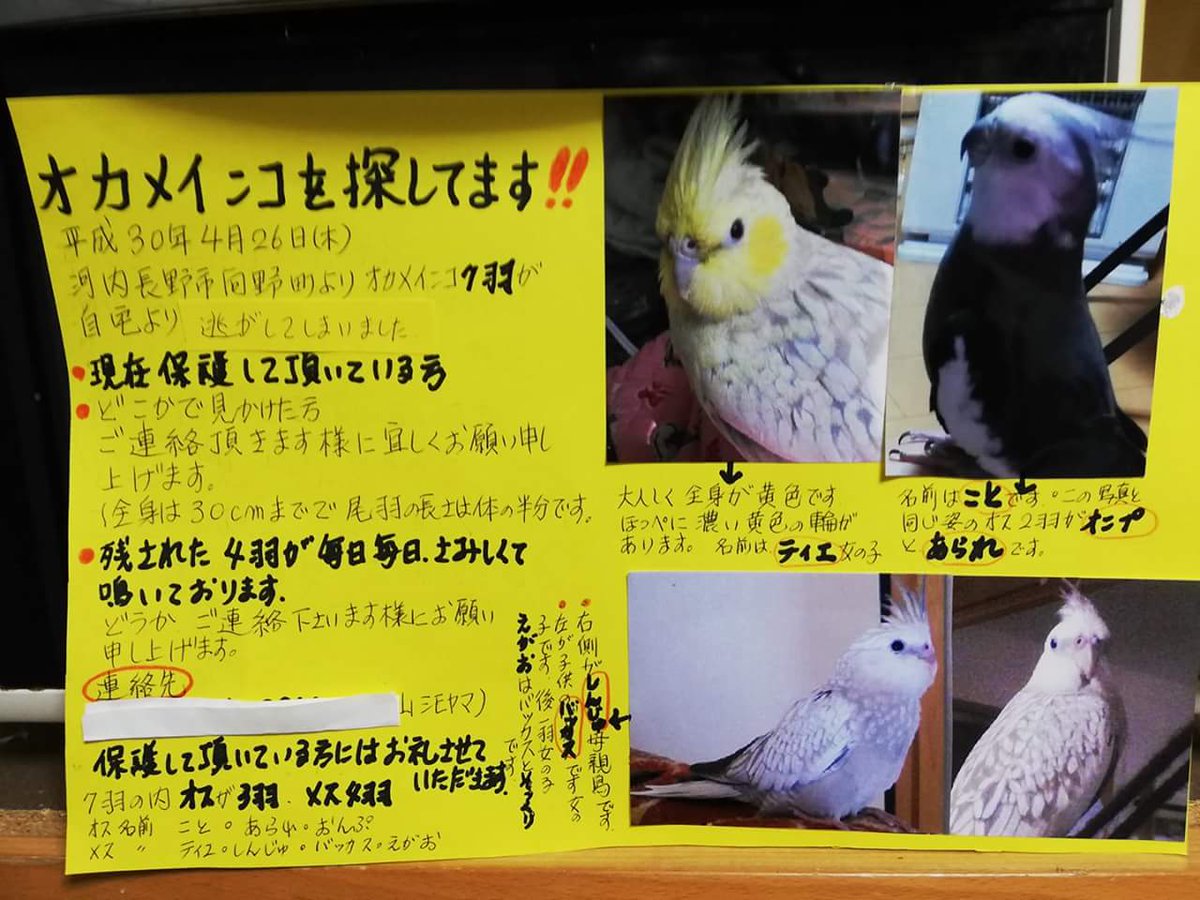 オカメインコを探してます!!
平成30年4月26日(木)
河内長野市向野町よりオカメインコ7羽が
自宅より 逃がしてしまいました
• 現在保護して頂いている方
• どこかで見かけた方
ご連絡頂きます様に宜しくお願い申し
上げます。
(全身は30cmまでで尾羽の長さは体の半分です。
• 残された4羽が毎日毎日、さみしくて
鳴いております。
どうかご連絡下さいます様にお願い
申し上げます。
連絡先
山 シモヤマ)
保護して頂いている方にはお礼させて
いただきます。
7羽の内 オスが3羽、メス4羽
オス名前 こと。あられ。おんぷ
メス 〃 ティエ。しんじゅ。バッカス。えがお
大人しく全身が黄色です
ほっぺに濃い黄色の輪が
あります。 名前は ティエ 女の子
名前はことです。この写真と
同じ姿のオス2羽がオンプ
と あられです。
右側がしんじゅ母親鳥です。
左が子供のバッカスです女の
子です 後一羽女の子
えがおはバッカスとそっくり
です。